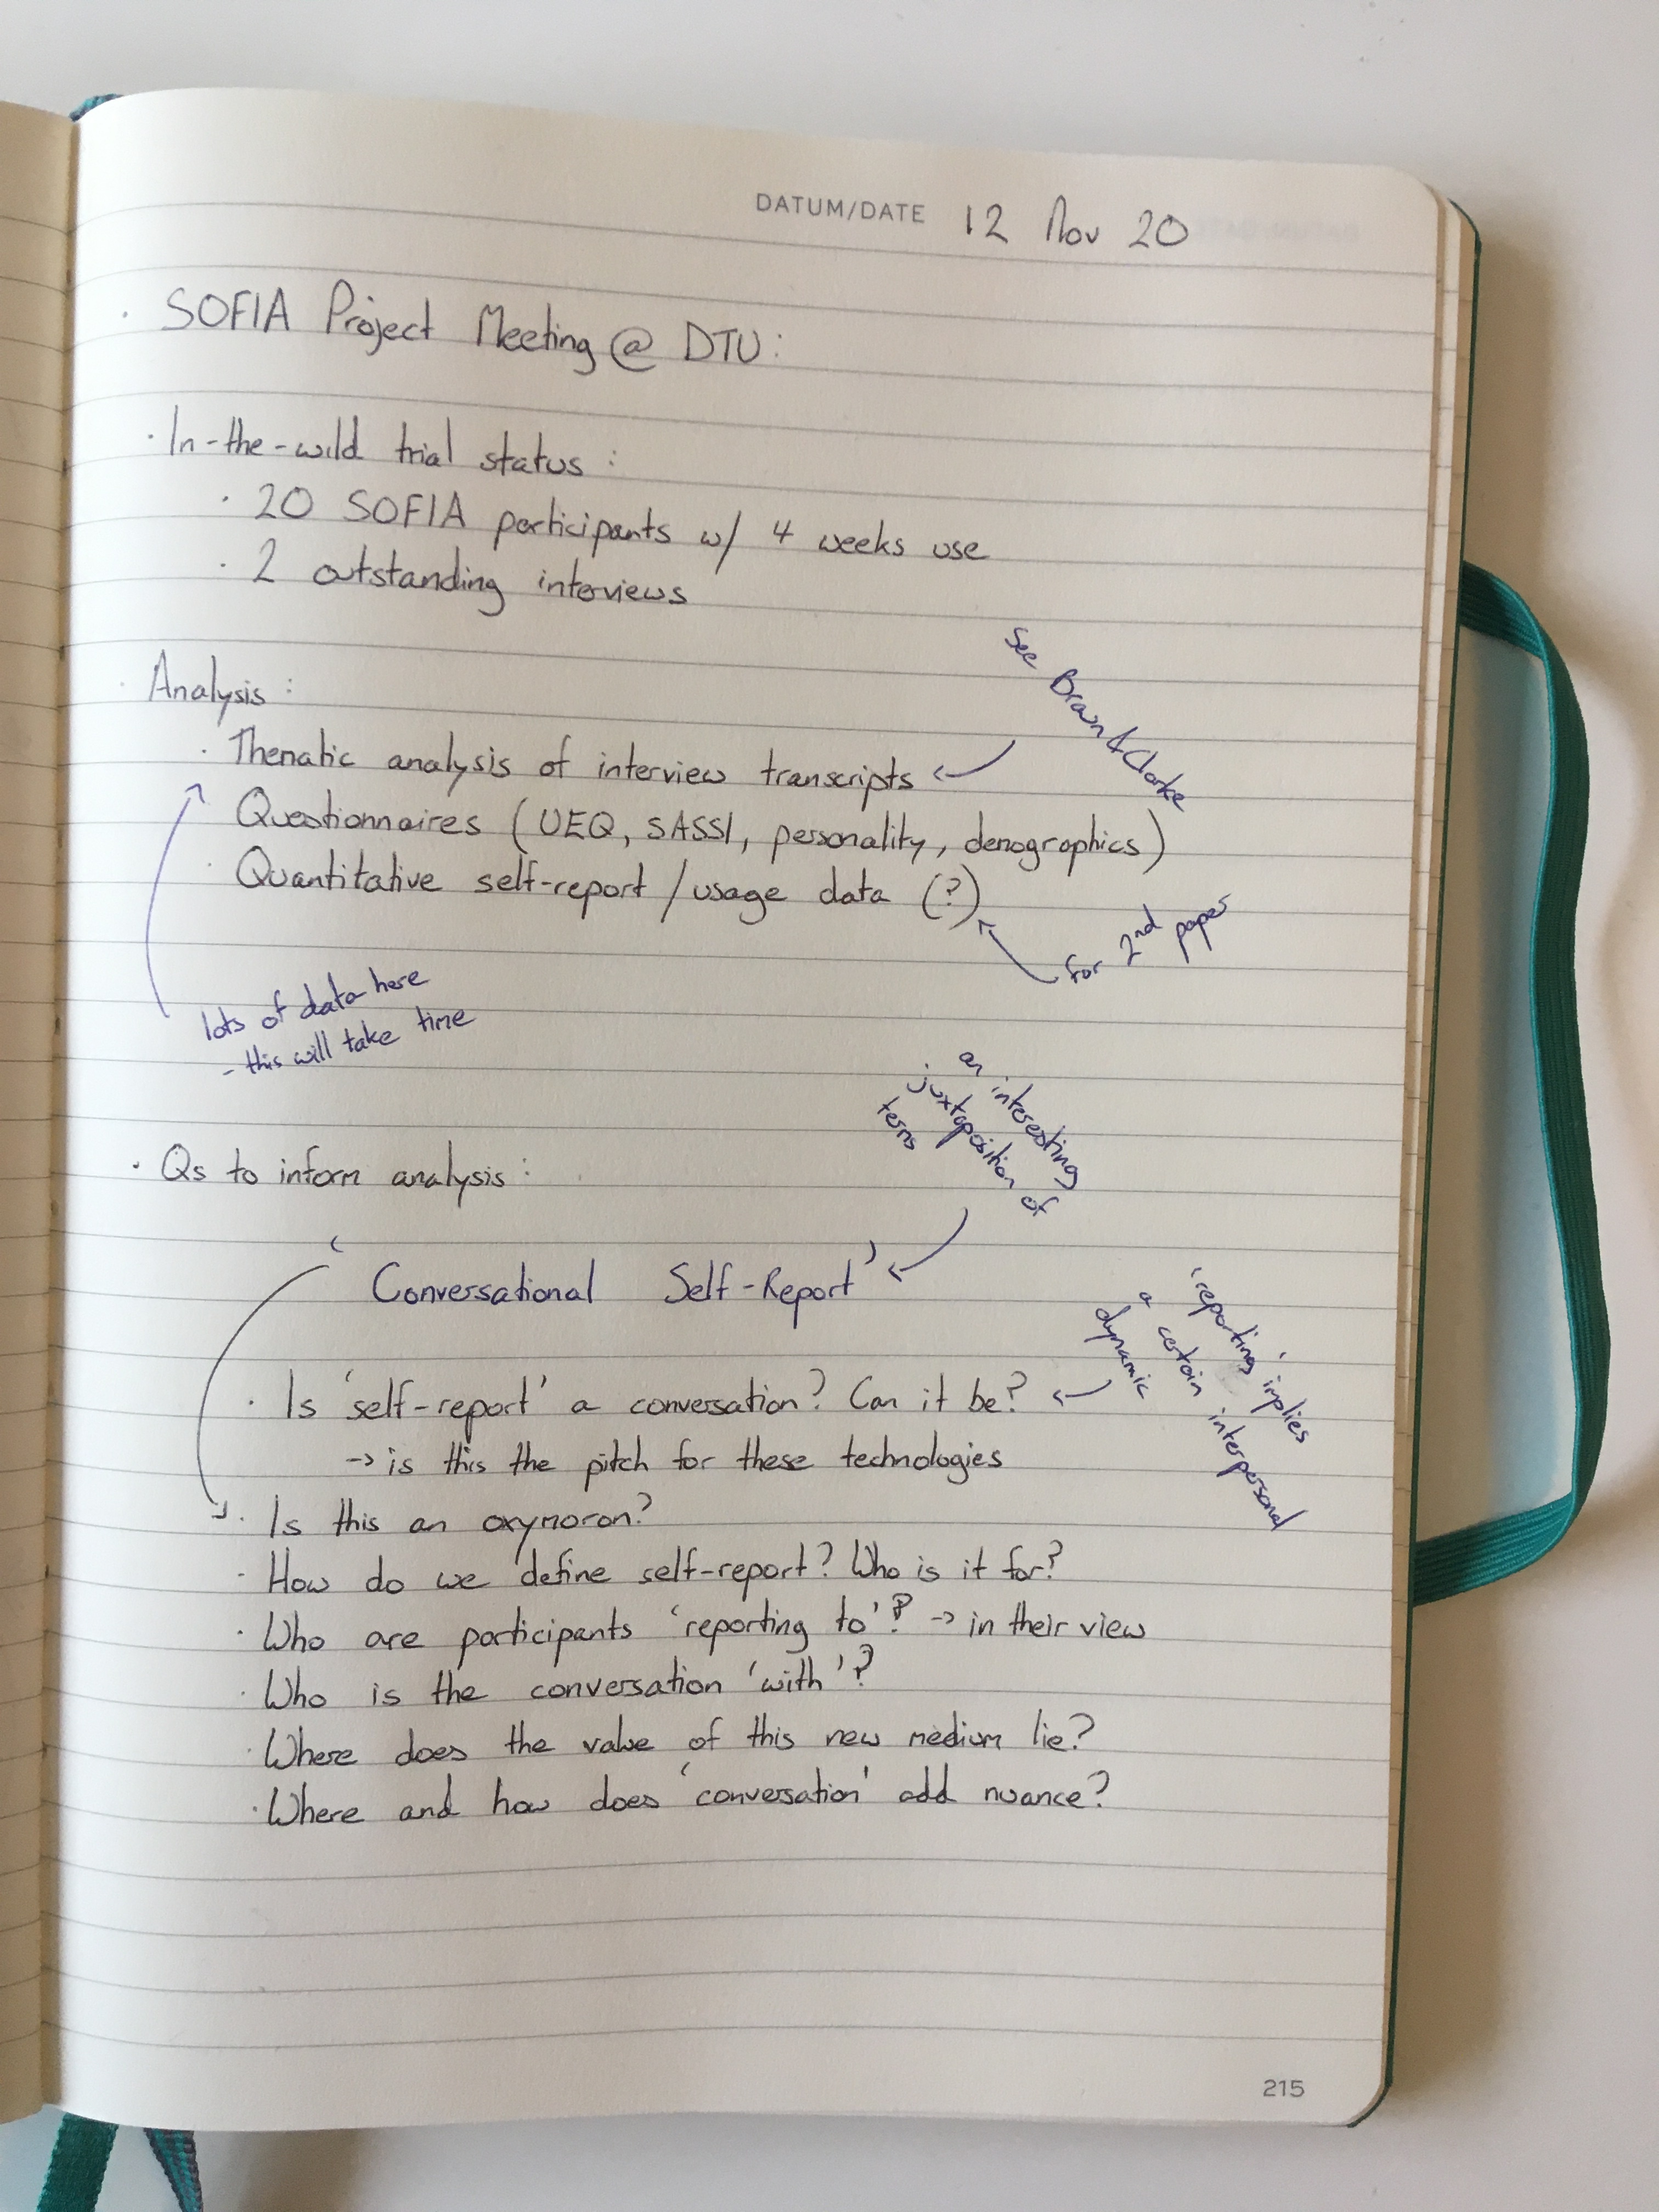 DATUM/DATE 12 Nov 20
· SOFIA Project Meeting @ DTU:
· In-the-wild trial status:
· 20 SOFIA participants w/ 4 weeks use
· 2 outstanding interviews
see Braun & Clarke
· Analysis:
· Thematic analysis of interview transcripts
· Questionnaires (UEQ, SASSI, personality, demographics)
· Quantitative self-report / usage data (?)
for 2nd paper
lots of data here
- this will take time
an interesting
juxtaposition of
terms
· Qs to inform analysis:
'Conversational Self-Report'
'reporting' implies
a certain interpersonal
dynamic
· Is 'self-report' a conversation? Can it be?
→ is this the pitch for these technologies
· Is this an oxymoron?
· How do we define self-report? Who is it for?
· Who are participants 'reporting to'? → in their view
· Who is the conversation 'with'?
· Where does the value of this new medium lie?
· Where and how does 'conversation' add nuance?
215